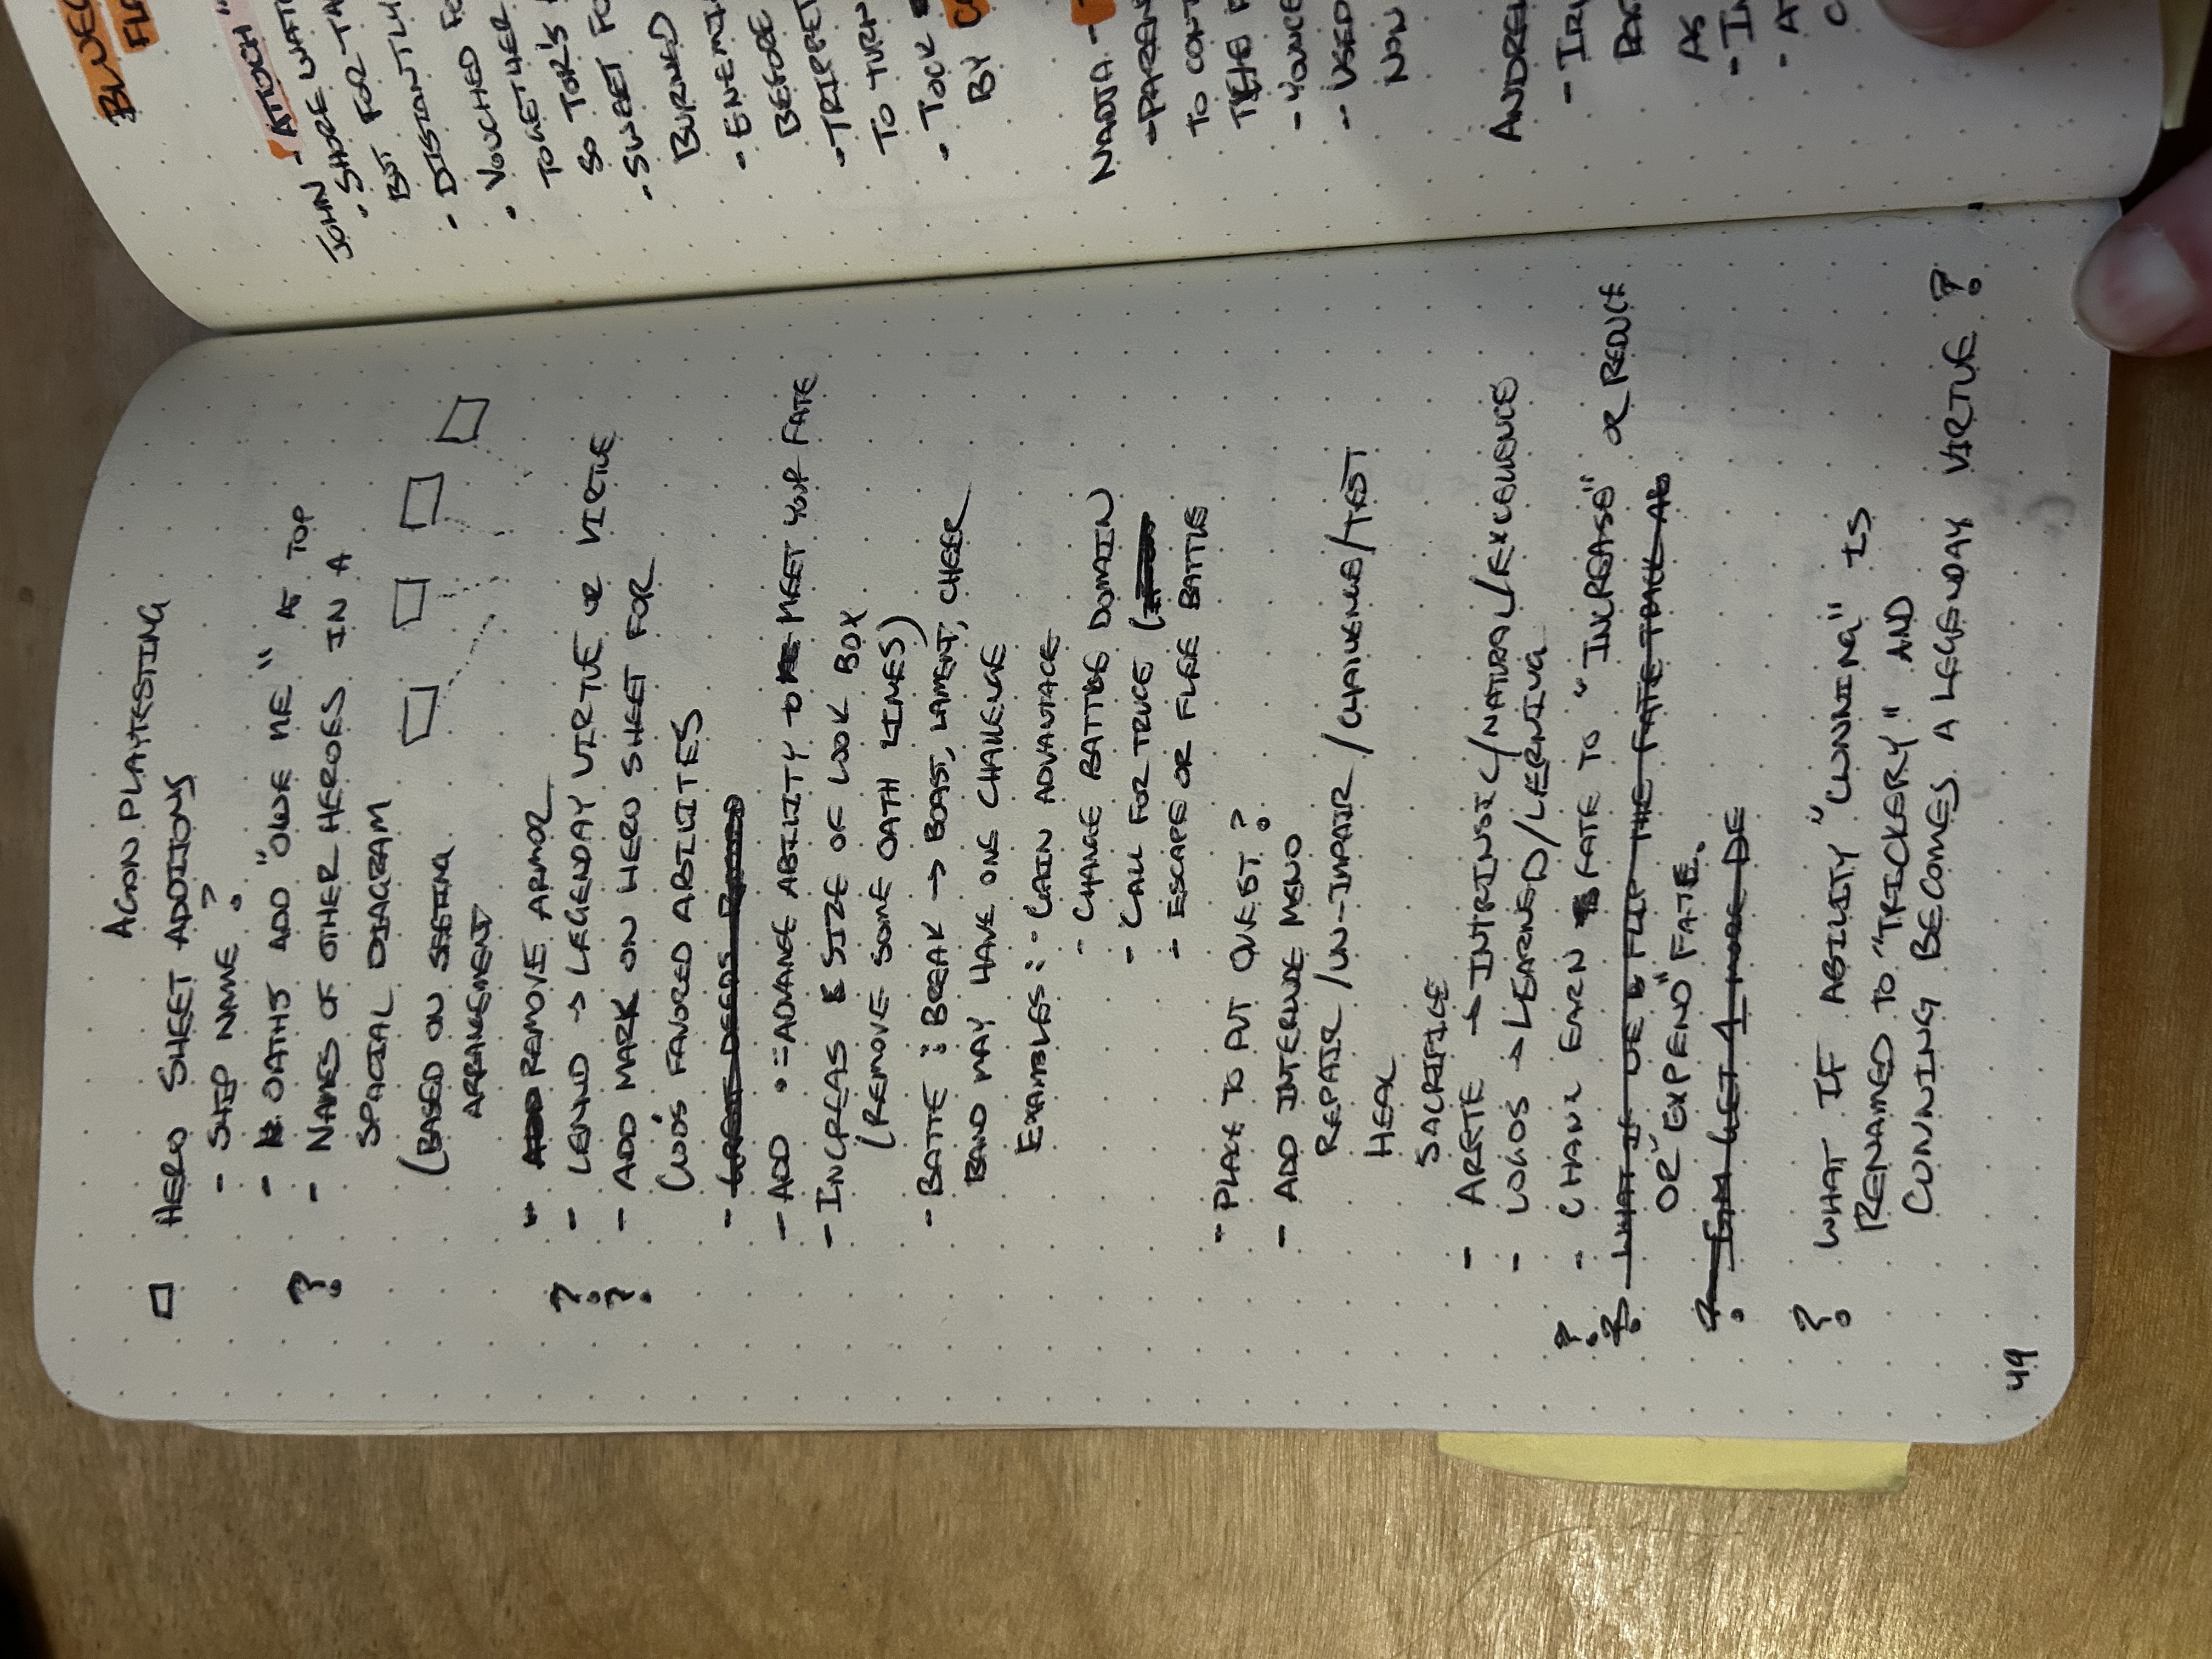 AGON PLAYTESTING
□ HERO SHEET ADDITIONS
- SHIP NAME?
- OATHS ADD "OWE ME" AT TOP
? - NAMES OF OTHER HEROES IN A
SPACIAL DIAGRAM
(BASED ON SEETING
ARRANGEMENT
- REMOVE ARMOR
? - LEGEND → LEGENDAY VIRTUE OR VIRTUE
? - ADD MARK ON HERO SHEET FOR
GOD'S FAVORED ABILITES
- GREAT DEEDS
- ADD := ADVANGE ABILITY MEET YOUR FATE
- INCREAS SIZE OF LOOK BOX
(REMOVE SOME OATH LINES)
- BATTE : BREAK → BOAST, LAMENT, CHEER
BAND MAY HAVE ONE CHALLENGE
EXAMBLES: - GAIN ADVANTAGE
- CHANGE BATTLE DOMAIN
- CALL FOR TRUCE (
- ESCAPE OR FLEE BATTLE
- PLACE TO PUT QUEST?
- ADD INTERLUDE MENO
REPAIR/UN-IMPAIR/CHALLENGE/TEST
HEAL
SACRIFICE
- ARETE → INTRINSIC/NATURAL/EXCELLENCE
- LOGOS → LEARNED/LERNING
? - CHANGE EARN FATE TO "INCREASE" OR REDUCE
? - WHAT IF WE FLIP THE FATE TRACK AS
OR "EXPEND" FATE.
? - GM GET 1 MORE DE
? WHAT IF ABILITY "CUNNING" IS
RENAMED TO "TRICKERY" AND
CUNNING BECOMES A LEGENDAY VIRTUE?
49
JOHN - "ATTOCH"
- SHORE
BUT FOR
- DISTANTLY
- VOUCHED
TOGETHER
SO TOR'S
- SWEET
BURNED
- ENEMI
BEFORE
- TRIPPET
TO TURN
- TOCK
BY
NADJA -
- PAREN
TO CONT
- YOUNGE
- USED
NOW
ANDRE
AS